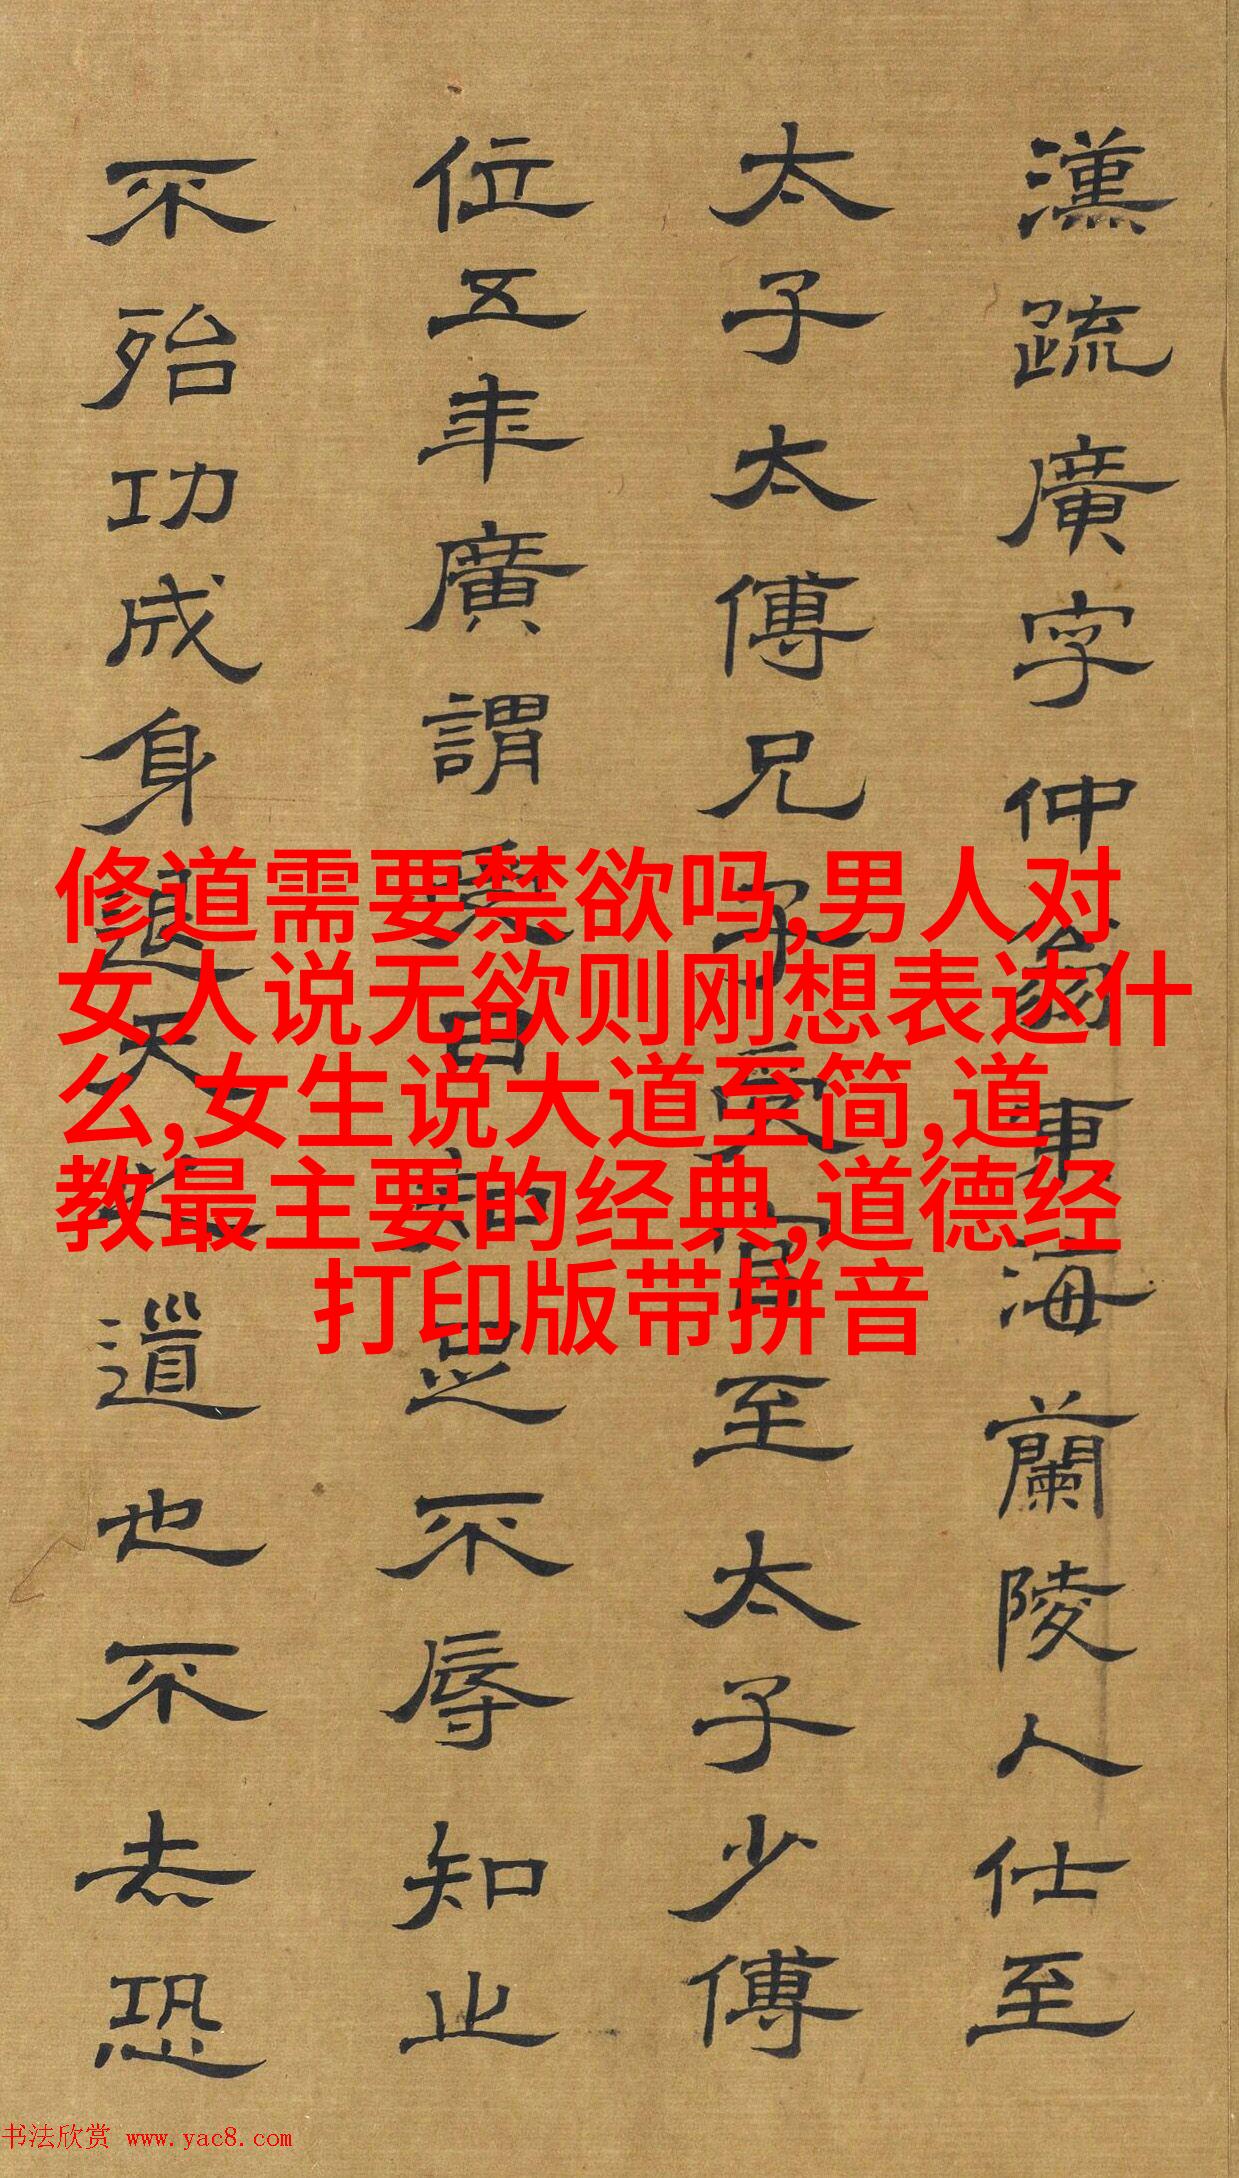 漢疏廣字仲翁東海蘭陵人仕至
太子太傅兄子受官至太子少傅
位五年廣謂受曰知足不辱知止
不殆功成身退天之道也不去恐
修道需要禁欲吗,男人对
女人说无欲则刚想表达什
么,女生说大道至简,道
教最主要的经典,道德经
打印版带拼音
书法欣赏 www.yac8.com